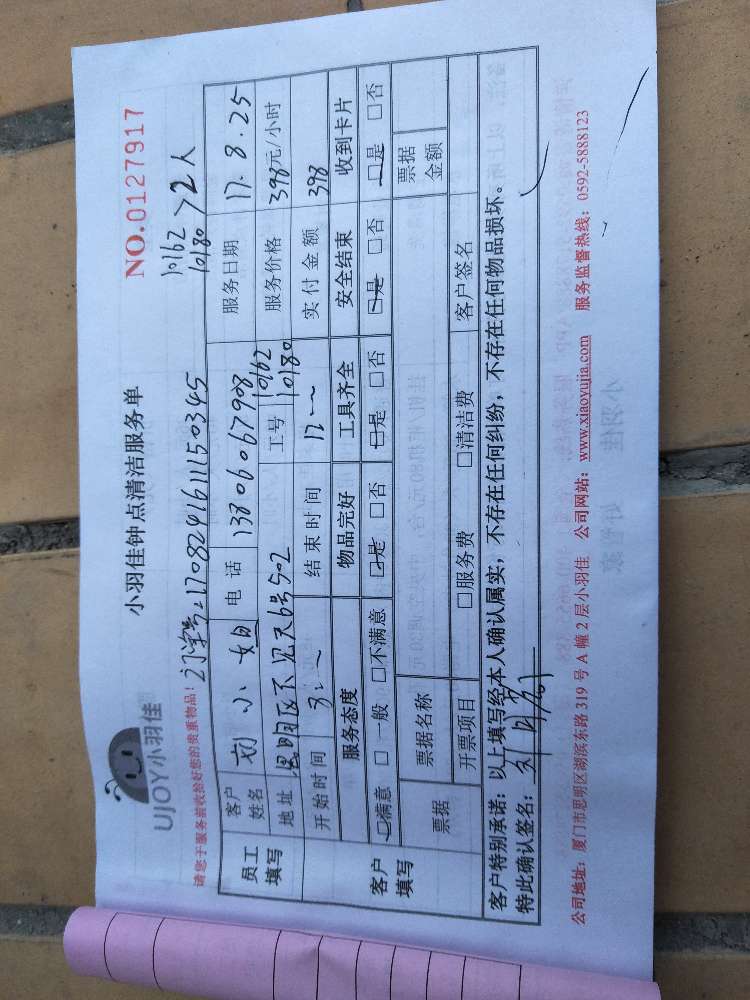 UJOY小羽佳
小羽佳钟点清洁服务单
NO.0127917
请您于服务前收拾好您的贵重物品!
1708241611150345
10162
10180 >2人
员工填写 客户姓名 刘小姐 电话 13806067908 服务日期 17.8.25
地址 思明区不见天6号502 工号 10162 10180 服务价格 398元/小时
开始时间 结束时间 12 实付金额 398
客户填写 服务态度 物品完好 工具齐全 安全结束 收到卡片
□满意 □一般 □不满意 □是 □否 □是 □否 □是 □否 □是 □否
票据 票据名称 票据金额
开票项目 □服务费 □清洁费 客户签名
客户特别承诺:以上填写经本人确认属实,不存在任何纠纷,不存在任何物品损坏。
特此确认签名:
公司地址:厦门市思明区湖滨东路 319 号 A 幢 2 层小羽佳 公司网站:www.xiaoyujia.com 服务监督热线:0592-5888123